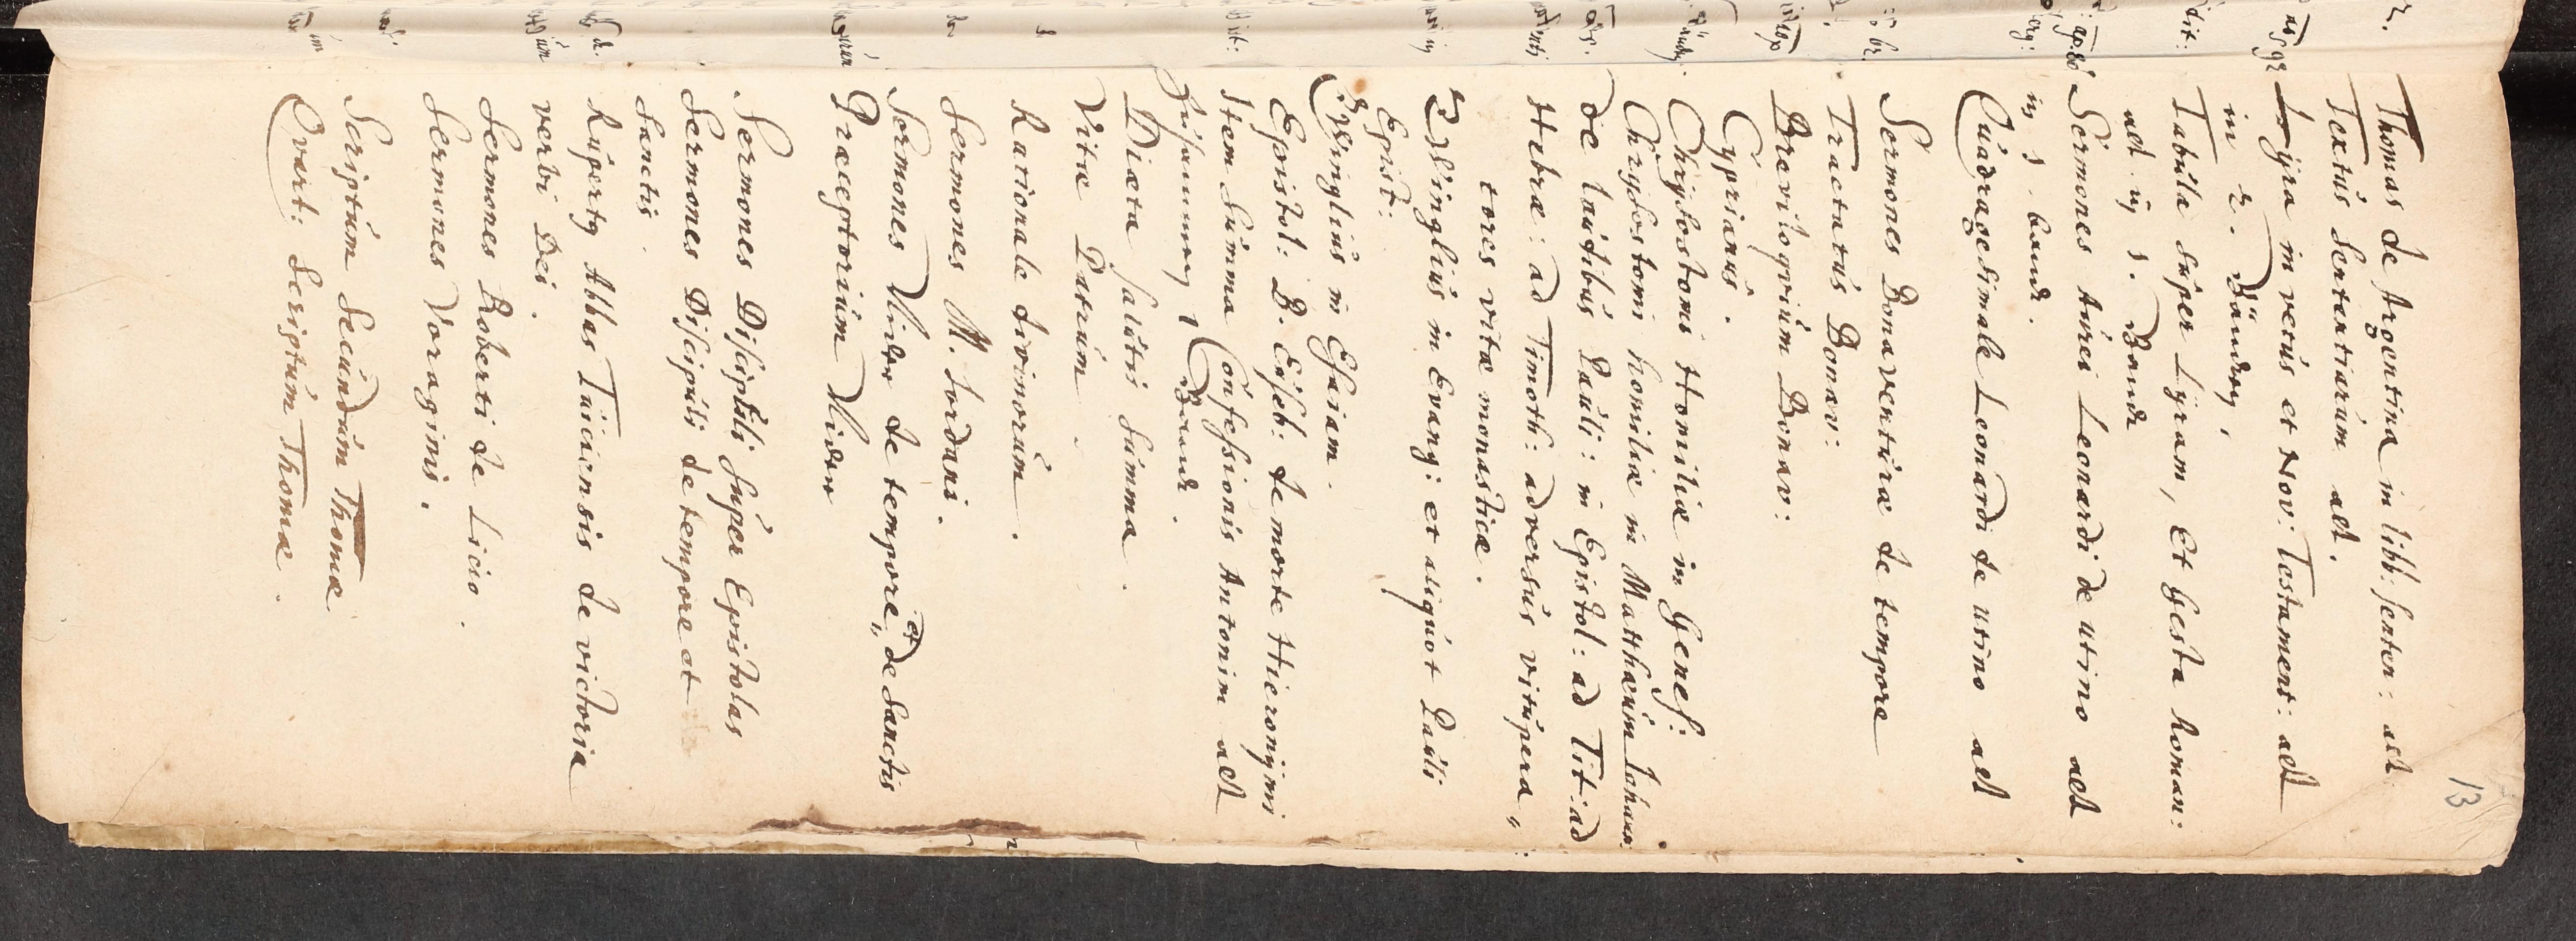 13
Thomas de Argentina in libb: senten: alt
Textús Sententiarúm alt.
Lÿra in vetús et Nov: Testament: alt
in 2. Bänden,
Tabúla súper Lÿram, et Gesta Roman:
alt in 1. Bandt
Sermones Aúrei Leonardi de Utino alt
in 1. bandt.
Qúadragesimale Leonardi de Utino alt
Sermones Bonaventúræ de tempore
Tractatús Bonav:
Breviloqviúm Bonav:
Cÿprianús.
Chrÿsostomi Homiliæ in Genes:
Chrÿsostomi homiliæ in Matthæúm Johann:
De laúdibús Paúli: in Epistol: ad Tit: ad
Hebræ: ad Timoth: adversús vitúpera„
tores vitæ monasticæ.
Zwinglius in Evang: et aliqúot Paúli
Epist:
Zwinglius in Esaiam.
Epistol: B. Eúseb: de morte Hieronÿmi
Item Súmma Confessionis Antonini alt
zúsammen 1 Bandt.
Diæta salútis súmma.
Vitæ Patrúm.
Rationale divinorúm.
Sermones M. Jordani.
Sermones Nider de tempore„ et de Sanctis
Præceptoriúm Nider
Sermones Discipúli súper Epistolas
Sermones Discipúli de tempore et
Sanctis.
Rúpertus Abbas Túiciensis de victoria
verbi Dei.
Sermones Roberti de Licio.
Sermones Voraginis.
Scriptúm Secúndúm Thomæ
Qvart: Scriptúm Thomæ.